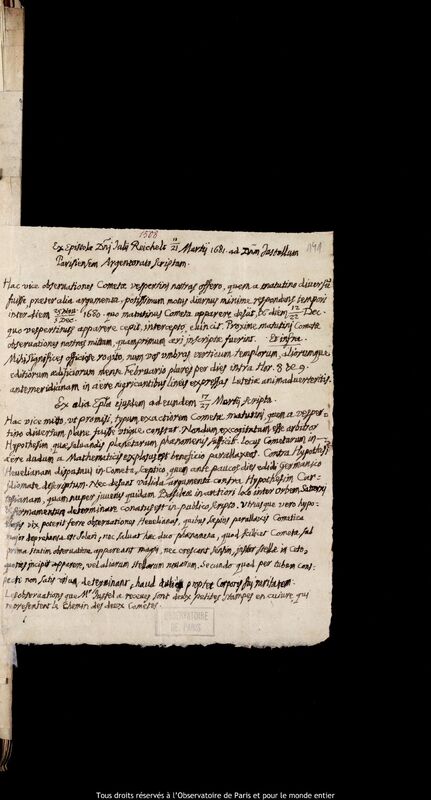 1508
Ex Epistola Dni Julij Reichelt 11/21 Martij 1681. ad Dnum Justellum 191
Parisiensem Argentorato scriptam.
Hac vice observationes Cometæ vespertini nostras offero, quem a matutino diversum
fuisse præter alia argumenta, potissimum motus diurnus minime respondens tempori
inter diem 1680. quo matutinus Cometa apparere desiit, & diem 12/22 Dec.
quo vespertinus apparere cepit, intercepto, evincit. Proxime matutini Cometæ
observationes nostras mittam, quamprimum æri inscriptæ fuerint. Et infra.
Mihi significes officiose rogito, num vos umbras verticum Templorum, aliorumque
editiorum ædificiorum mense Februario plures per dies intra hor. 8 & 9.
antemeridianam in aere nigricantibus lineis expressas Lutetiæ animadverteritis.
Ex alia Epla ejusdem ad eundem 17/27 Martij scripta.
Hac vice mitto, ut promisi, typum exactiorem Cometæ matutini, quem a vesper=
tino diversum plane fuisse utique constat. Nondum excogitatum esse arbitror
Hypothesim quæ salvandis planetarum phænomenis sufficit. locus Cometarum in
aere dudum a Mathematicis explosus est beneficio parallaxeos. Contra Hypothesim
Hevelianam disputavi in Cometa, sceptico, quem ante paucos dies edidi Germanico
idiomate descriptum. Nec desunt valida argumenta contra Hypothesim Car=
tesianam, quam nuper juvenis quidam Basileæ in altiori loco inter orbem Saturni
& firmamentum determinare conatus est in publico scripto. utraque vero hypo=
thesis vix poterit ferre observationes Hevelianas, quibus sæpius parallaxis Cometica
major deprehensa est Solari, nec salvat hæc duo phænomena, quod scilicet Cometæ sub
prima statim observatione appareant magni, nec crescant sensim, instar stellæ in Ceto,
quoties incipit apparere, vel aliarum stellarum novarum. Secundo quod per tubum con=
specti non satis determinati, haud dubie propter corporis sui raritatem.
Les observations que Mr Justel a receues sont deux petites Stampes en cuivre qui
representent le Chemin des deux Cometes.
OBSERVATOIRE
DE PARIS
Tous droits réservés à l'Observatoire de Paris et pour le monde entier